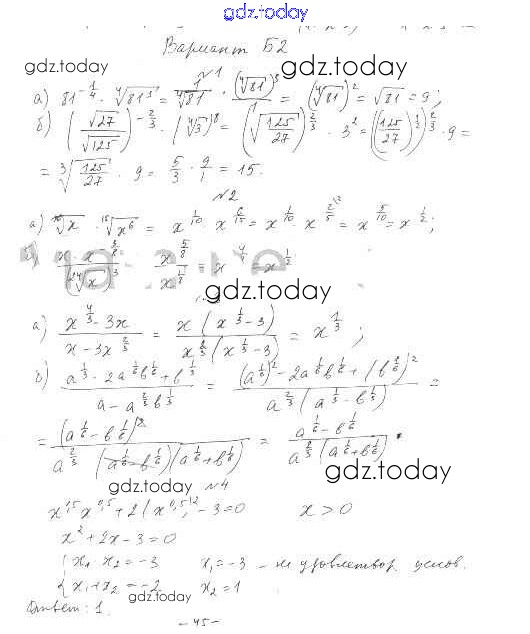 gdz.today
Вариант Б2
№1
а) 81^{-1/4} · ⁴√81³ = 1/⁴√81 · (⁴√81)³/1 = (⁴√81)² = √81 = 9;
б) (√27/√125)^{-2/3} · (⁴√3)^8 = (√(125/27))^{2/3} · 3² = ((125/27)^{1/2})^{2/3} · 9 =
= ³√(125/27) · 9 = 5/3 · 9/1 = 15.
№2
а) ¹⁰√x · ¹⁵√x⁶ = x^{1/10} · x^{6/15} = x^{1/10} · x^{2/5} = x^{5/10} = x^{1/2};
gdz.today
а) (x^{4/3} - 3x)/(x - 3x^{2/3}) = x(x^{1/3} - 3)/(x^{2/3}(x^{1/3} - 3)) = x^{1/3};
б) (a^{1/3} - 2a^{1/6}b^{1/6} + b^{1/3})/(a - a^{2/3}b^{1/3}) = ((a^{1/6})² - 2a^{1/6}b^{1/6} + (b^{1/6})²)/(a^{2/3}(a^{1/3} - b^{1/3})) =
= (a^{1/6} - b^{1/6})²/(a^{2/3}(a^{1/6} - b^{1/6})(a^{1/6} + b^{1/6})) = (a^{1/6} - b^{1/6})/(a^{2/3}(a^{1/6} + b^{1/6})).
gdz.today
№4
x^{1,5}x^{0,5} + 2(x^{0,5})² - 3 = 0 x > 0
x² + 2x - 3 = 0
x₁ · x₂ = -3 x₁ = -3 - не удовлетвор. услов.
x₁ + x₂ = -2 x₂ = 1
Ответ: 1.
gdz.today
- 45 -